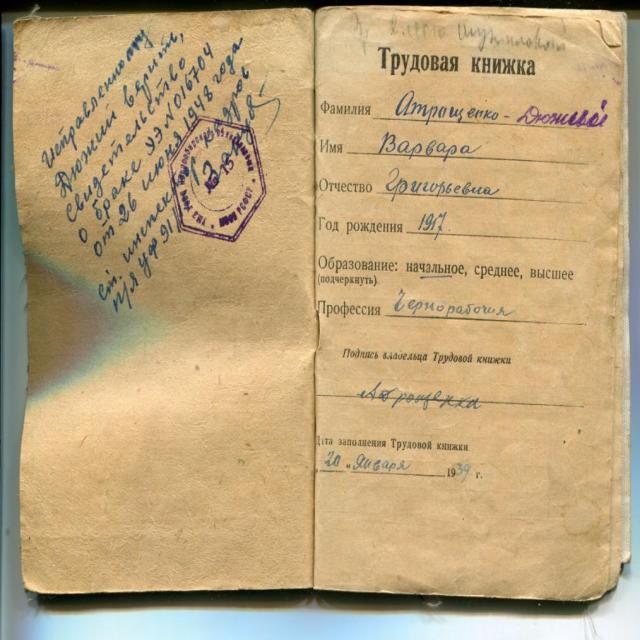 Исправленному
Дюжий верить,
свидетельство
о браке ЯЭ № 016704
от 26 июня 1948 года
ст. инспектор кадров
п/я уф 91/
Трудовая книжка
Фамилия Атращенко - Дюжий
Имя Варвара
Отчество Григорьевна
Год рождения 1917.
Образование: начальное, среднее, высшее
(подчеркнуть)
Профессия Чернорабочия
Подпись владельца Трудовой книжки
Атрощенко
Дата заполнения Трудовой книжки
"20" Января 1939 г.